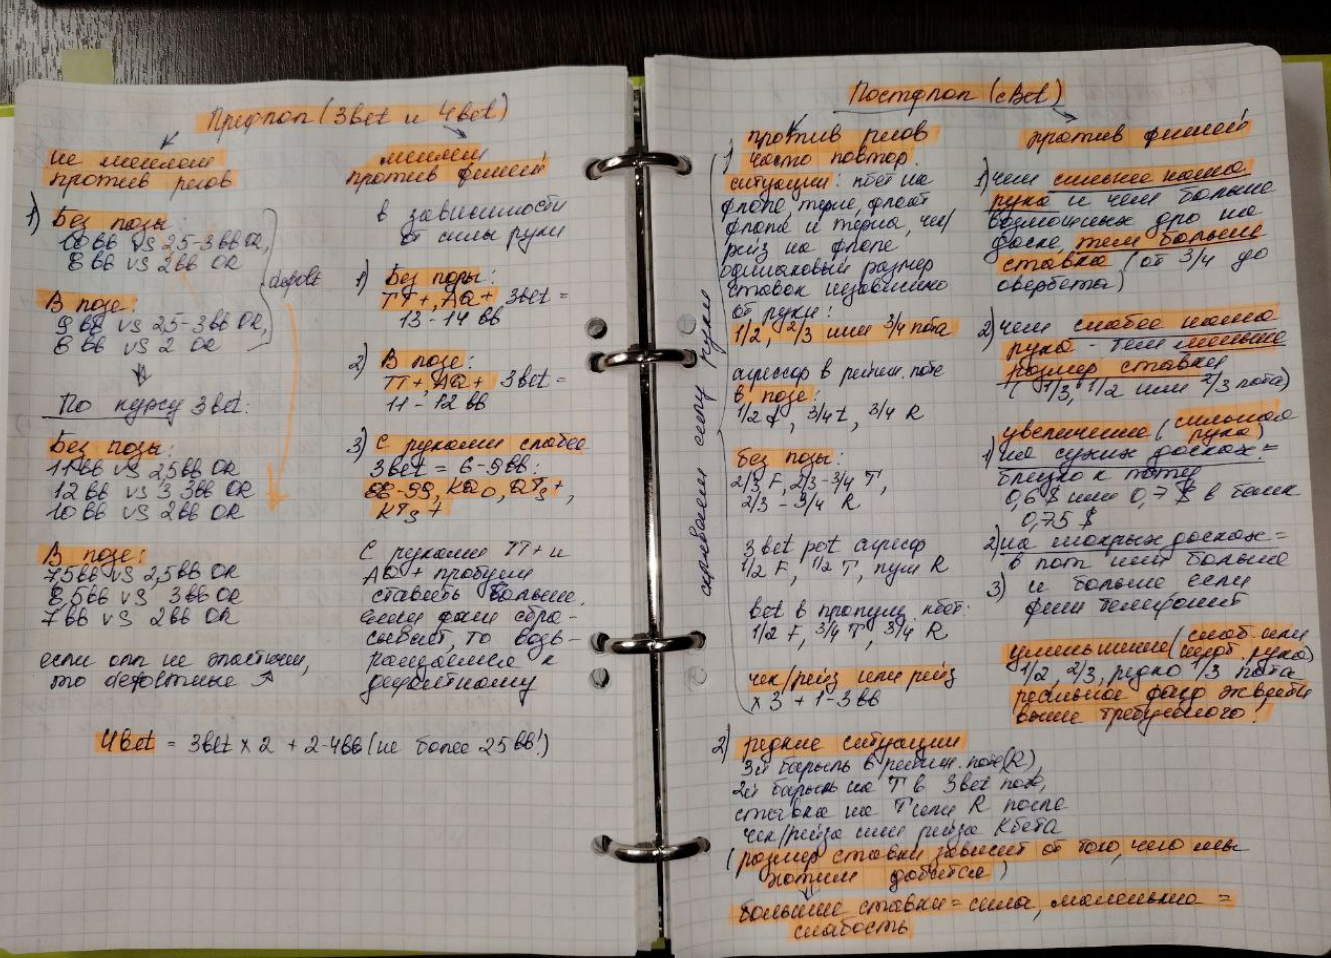 Префлоп (3bet и 4bet)
не меняем
против регов
1) Без позы:
10вв vs 2,5-3вв OR,
8вв vs 2вв OR
В позе:
9вв vs 2,5-3вв OR,
8вв vs 2 OR
По курсу 3bet:
Без позы:
11вв vs 2,5вв OR
12вв vs 3 3вв OR
10вв vs 2вв OR
В позе:
7,5вв vs 2,5вв OR
8,5вв vs 3вв OR
7вв vs 2вв OR
если опп не эластичен,
то дефолтные
меняем
против фишей
в зависимости
от силы руки
1) Без позы:
TT+, AQ+ 3bet =
13-14 вв
2) В позе:
TT+, AQ+ 3bet =
11-12 вв
3) С руками слабее
3bet = 6-9вв:
88-99, KQo, QTs+,
KTs+
С руками TT+ и
AQ+ пробуем
ставить больше,
если фиш сбра-
сывает, то возв-
ращаемся к
дефолтному
4bet = 3bet x 2 + 2-4вв (не более 25вв!)
Постфлоп (cBet)
скрываем силу руки
против регов
1) часто повтор.
ситуации: кбет на
флопе, терне, флоат
флопе и терна, чек/
рейз на флопе
одинаковый размер
ставок независимо
от руки:
1/2, 2/3 или 3/4 пота
агрессор в рейзн. поте
в позе:
1/2 f, 3/4 t, 3/4 R
без позы:
2/3 F, 2/3-3/4 T,
2/3 - 3/4 R
3bet pot агрессор
1/2 F, 1/2 T, пуш R
bet в пропущ. кбет:
1/2 F, 3/4 T, 3/4 R
чек/рейз или рейз
x 3 + 1-3вв
2) редкие ситуации
3й баррель в рейзн. поте (R),
2й баррель на T в 3bet поте,
ставка на T или R после
чек/рейза или рейза Кбета
(размер ставки зависит от того, чего мы
хотим добиться)
большие ставки = сила, маленькие =
слабость
против фишей
1) чем сильнее наша
рука и чем больше
возможных дро на
доске, тем больше
ставка (от 3/4 до
овербета)
2) чем слабее наша
рука - тем меньше
размер ставки
(1/3, 1/2 или 2/3 пота)
увеличение (сильная
рука)
1) на сухих досках =
близко к поту
0,6$ или 0,7$ в банк
0,75$
2) на мокрых досках =
в пот или больше
3) и больше если
фиш телефонит
уменьшение (слаб. или
рука)
1/2, 2/3, редко 1/3 пота
реальное фолд эквити
выше требуемого!